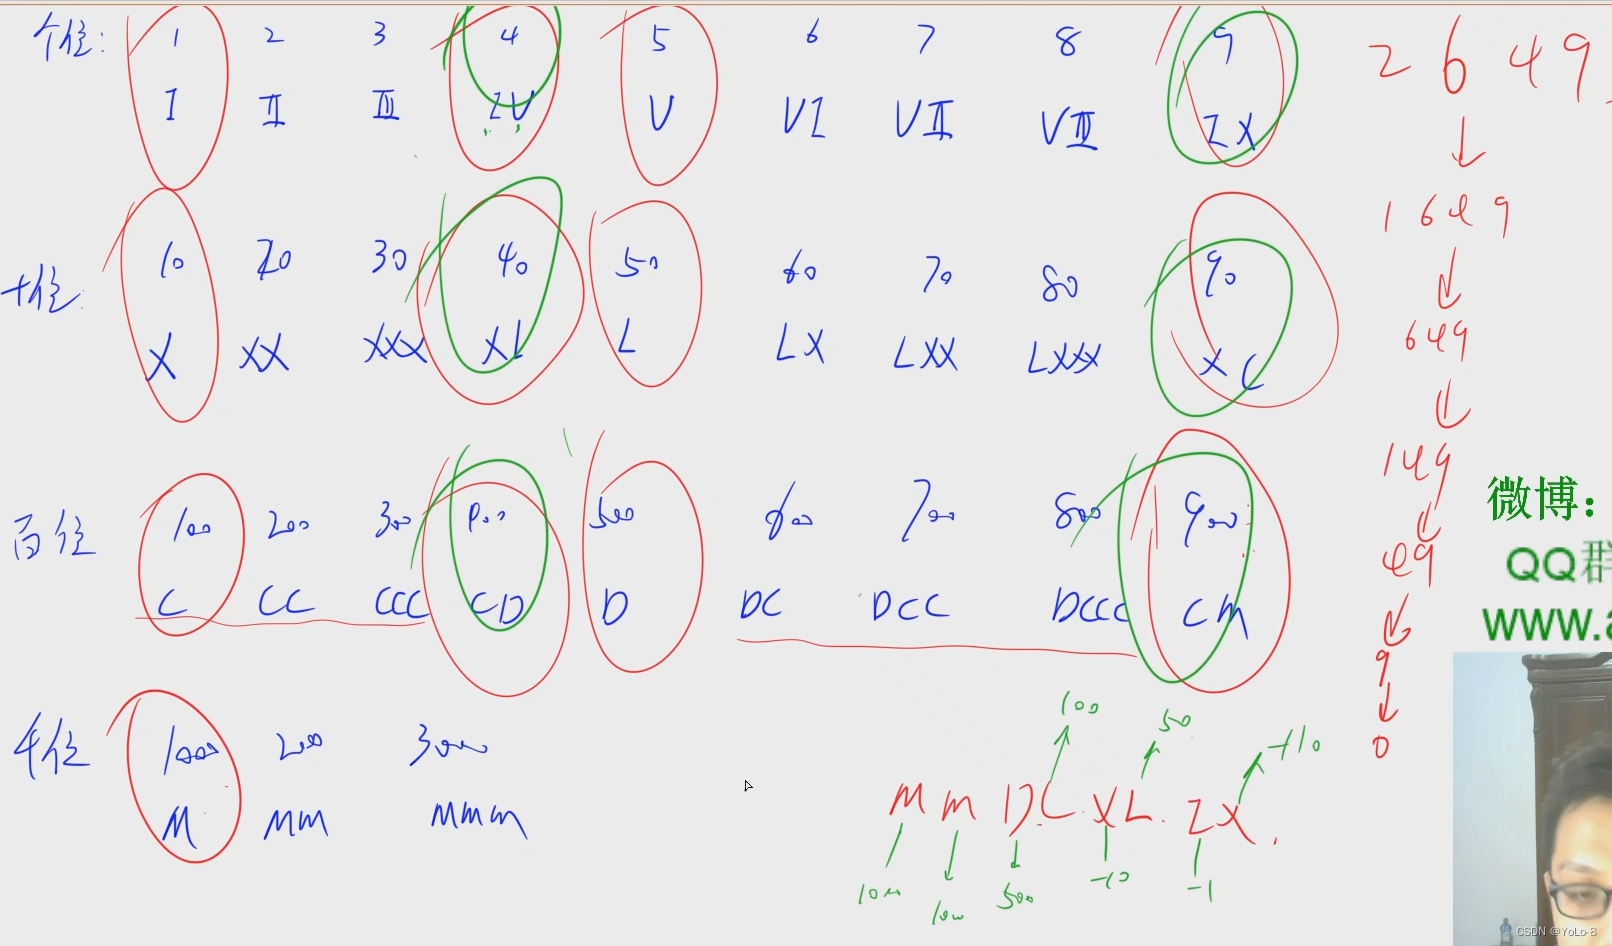 个位: 1 2 3 4 5 6 7 8 9
I II III IV V VI VII VIII IX
十位: 10 20 30 40 50 60 70 80 90
X XX XXX XL L LX LXX LXXX XC
百位 100 200 300 400 500 600 700 800 900
C CC CCC CD D DC DCC DCCC CM
千位 1000 2000 3000
M MM MMM
2649
1649
649
149
49
9
0
100 50 +10
M M D C X L I X
1000 1000 500 -10 -1
微博:
QQ群
www.a
CSDN @YoLo-8